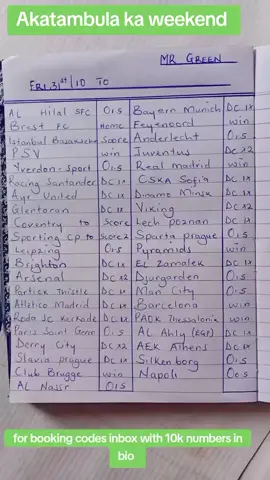 Akatambula ka weekend
MR GREEN
FRI 31st/10 TO
AL Hilal SFC O1.5 Bayern Munich DC 1X
Brest FC Home Feyenoord win
Istanbul Basaksehir Score Anderlecht O1.5
PSV win Juventus DC X2
Yverdon-sport O1.5 Real madrid win
Racing Santander DC 1X CSKA Sofia DC 1X
Ayr United DC 1X Dinamo Minsk DC 1X
Glentoran DC 1X Viking DC X2
Coventry to Score Lech poznan DC 1X
Sporting CP to Score 2 Sparta prague O1.5
Leipzing O1.5 Pyramids win
Brighton DC 1X EL Zamalek DC 1X
Arsenal DC X2 Djurgarden O1.5
Partick Thistle DC 1X Man City O1.5
Atletico Madrid DC 1X Barcelona win
Roda JC Kerkade DC 1X PAOK Thessalonia win
Paris Saint Germ O1.5 AL Ahly (EGP) DC 1X
Derry City DC X2 AEK Athens DC 1X
Slavia prague DC 1X Silkenborg O1.5
Club Brugge win Napoli O0.5
AL Nassr O1.5
for booking codes inbox with 10k numbers in
bio